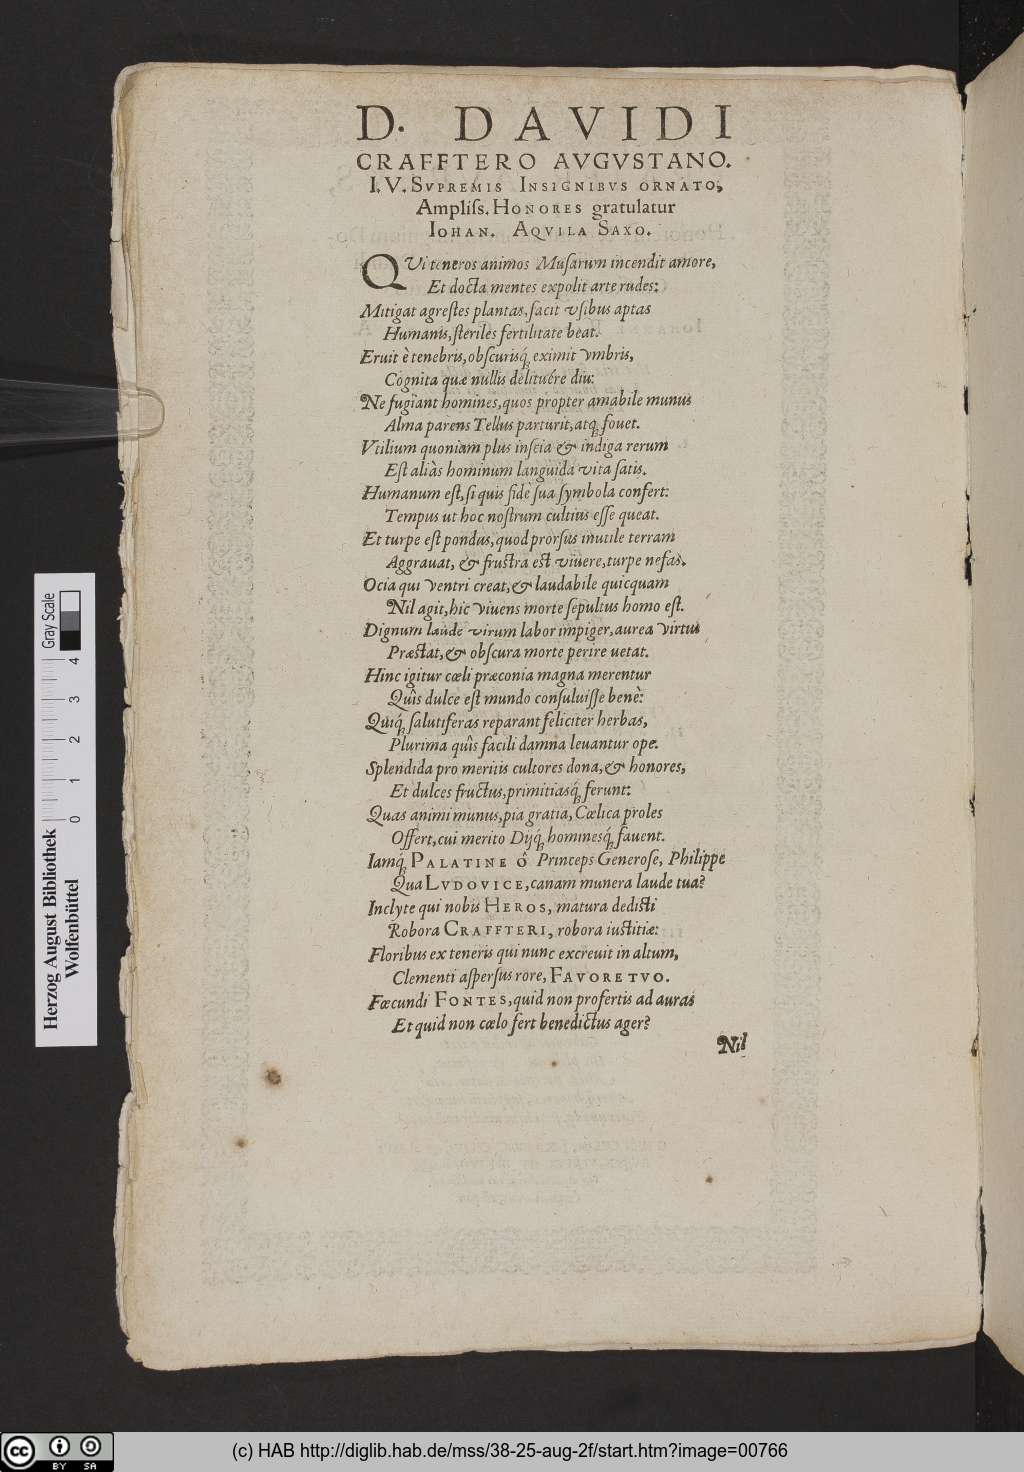 D. DAVIDI
CRAFFTERO AVGVSTANO.
I. V. SVPREMIS INSIGNIBVS ORNATO,
Ampliſs. HONORES gratulatur
IOHAN. AQVILA SAXO.
QVi teneros animos Muſarum incendit amore,
Et docta mentes expolit arte rudes:
Mitigat agreſtes plantas, facit vſibus aptas
Humanis, ſteriles fertilitate beat.
Eruit è tenebris, obſcurisq́; eximit vmbris,
Cognita quæ nullis delituére diu:
Ne fugiant homines, quos propter amabile munus
Alma parens Tellus parturit, atq́; fouet.
Vtilium quoniam plus inſcia & indiga rerum
Eſt aliàs hominum languida vita ſatis.
Humanum eſt, ſi quis fidè ſua ſymbola confert:
Tempus ut hoc noſtrum cultius eſſe queat.
Et turpe eſt pondus, quod prorſus inutile terram
Aggrauat, & fruſtra eſt viuere, turpe nefas.
Ocia qui ventri creat, & laudabile quicquam
Nil agit, hic viuens morte ſepultus homo eſt.
Dignum laude virum labor impiger, aurea virtus
Præſtat, & obſcura morte perire uetat.
Hinc igitur cœli præconia magna merentur
Quîs dulce eſt mundo conſuluiſſe benè:
Quiq́; ſalutiferas reparant feliciter herbas,
Plurima quîs facili damna leuantur ope.
Splendida pro meritis cultores dona, & honores,
Et dulces fructus, primitiasq́; ferunt:
Quas animi munus, pia gratia, Cœlica proles
Offert, cui merito Dijq́; hominesq́; fauent.
Iamq́; PALATINE ô Princeps Generoſe, Philippe
Qua LVDOVICE, canam munera laude tua?
Inclyte qui nobis HEROS, matura dediſti
Robora CRAFFTERI, robora iuſtitiæ:
Floribus ex teneris qui nunc excreuit in altum,
Clementi aſperſus rore, FAVORE TVO.
Fœcundi FONTES, quid non profertis ad auras
Et quid non cœlo fert benedictus ager?
Nil
Herzog August Bibliothek
Wolfenbüttel
Gray Scale
0 1 2 3 4
cc BY SA
(c) HAB http://diglib.hab.de/mss/38-25-aug-2f/start.htm?image=00766